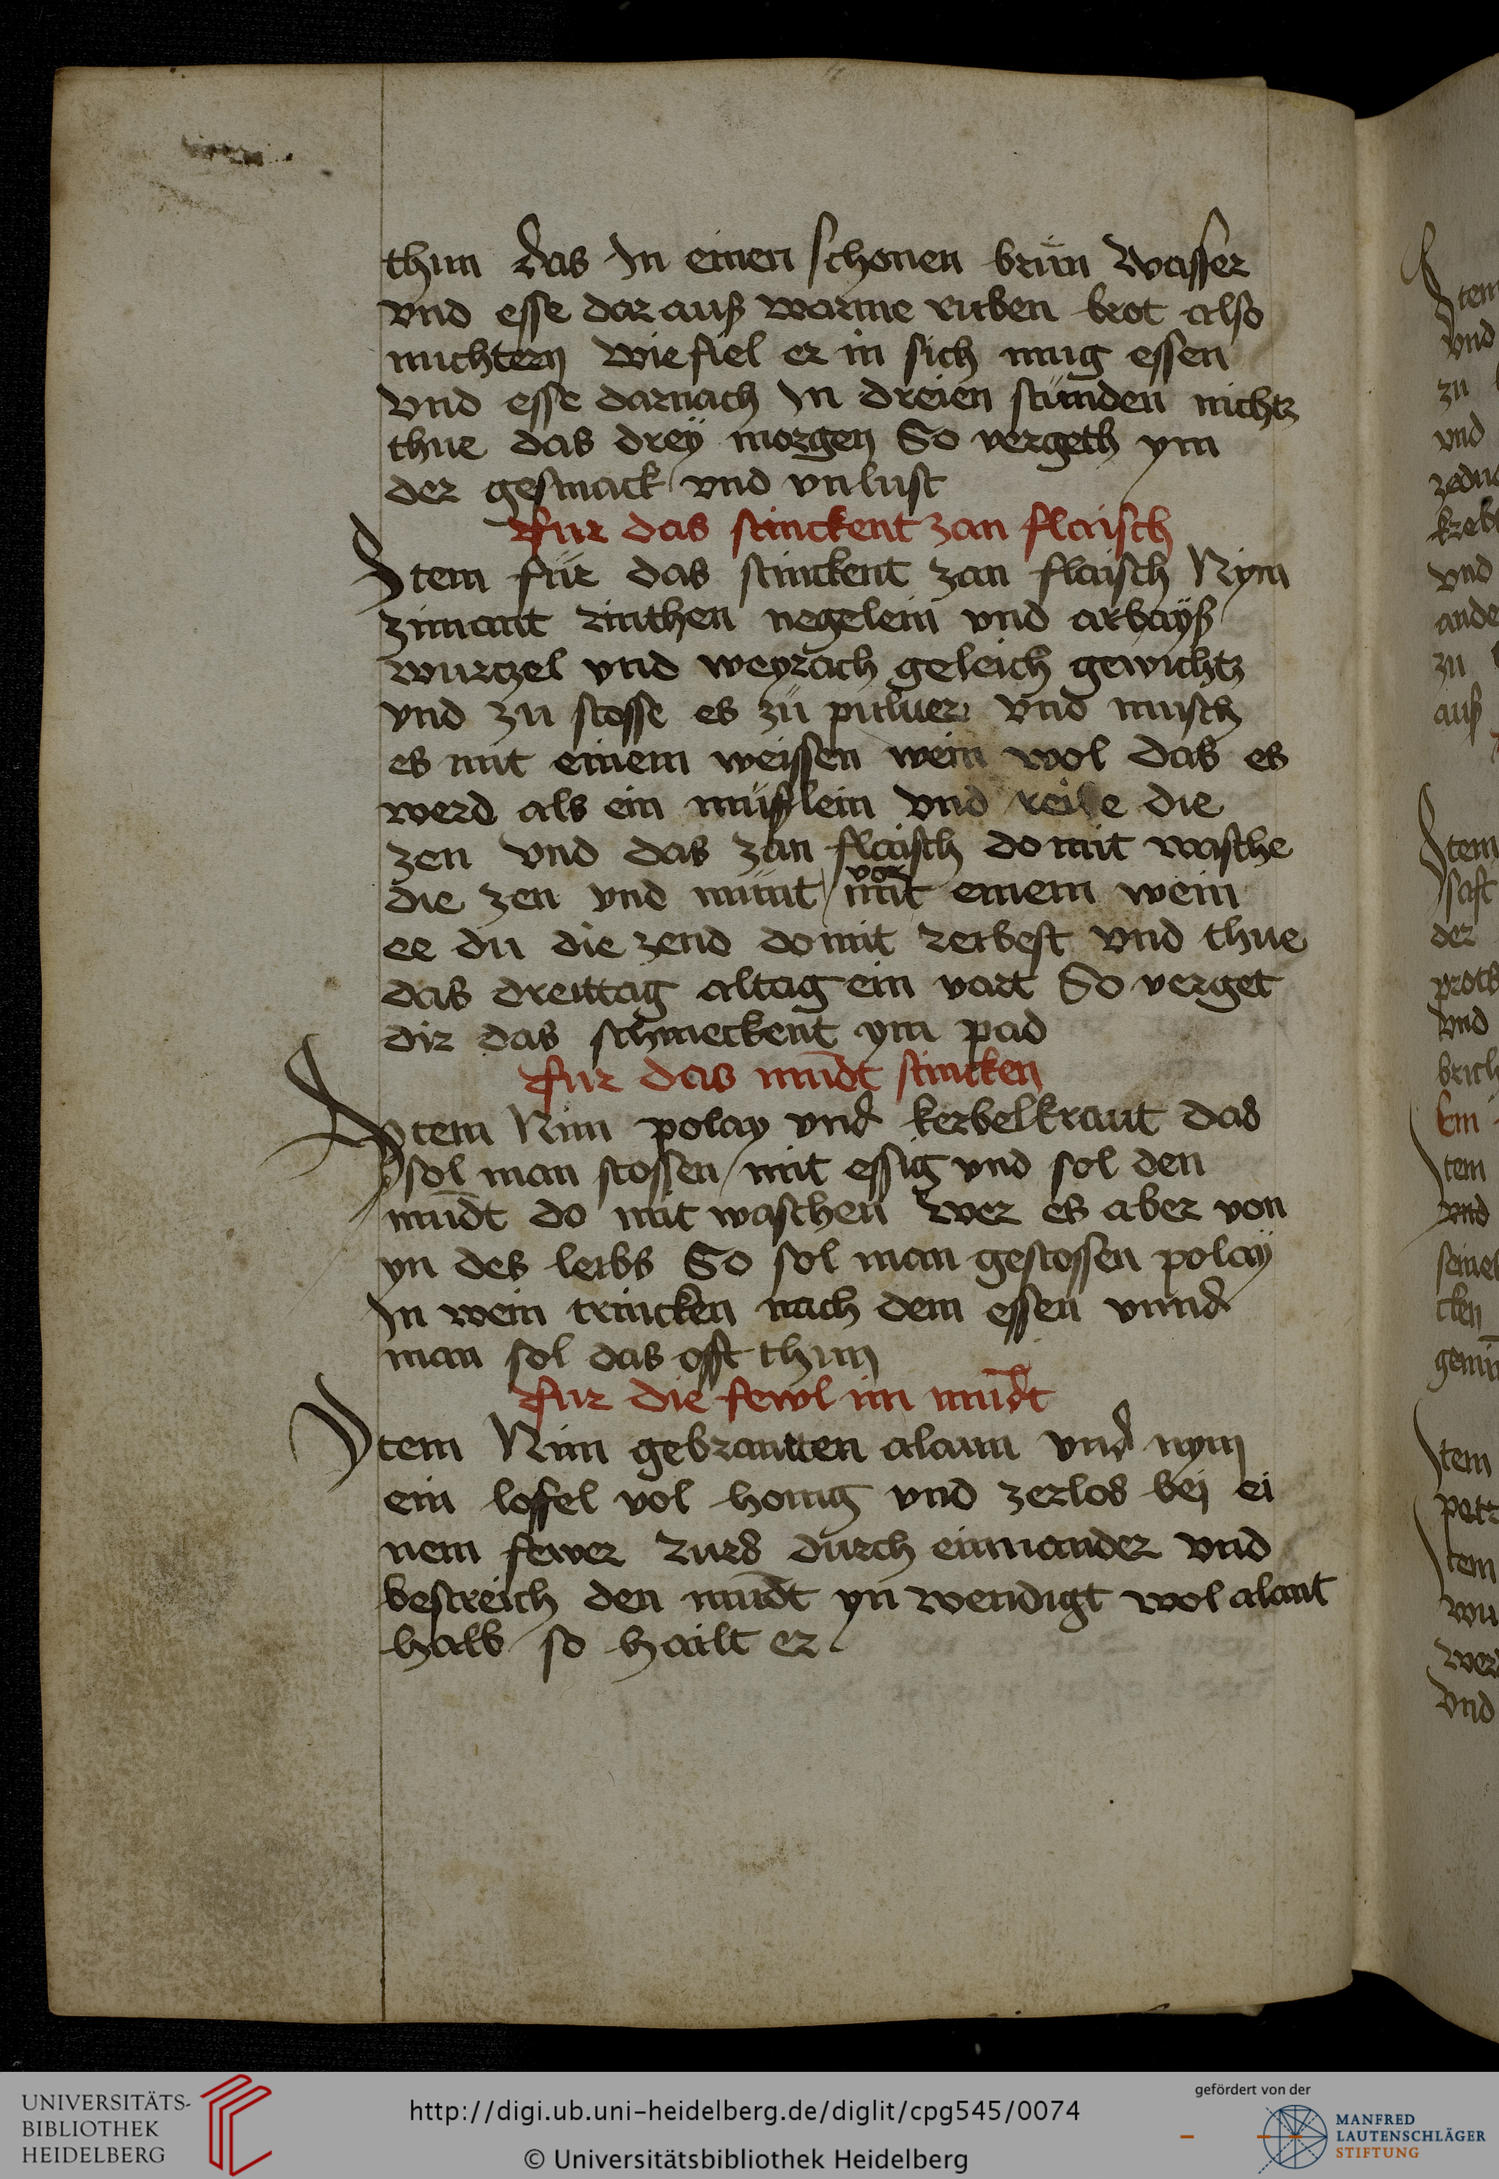 thun das In einen schonen brün Wasser
vnd esse dar auß warme ruben brot also
nuchtern wie fiel er in sich mug essen
Vnd esse darnach In dreien stünden nichtz
thue das dreÿ morgen So vergeth ym
der gesmack vnd vnlust
fur das stinckent zan flaisch
Item für das stinckent zan flaisch Nym
zimant rinthen negelein vnd arbayß
wurczel vnd weyrach geleich gewichtz
vnd zu stosse es zü puluer vnd misch
es mit einem weissen wein wol das es
werd als ein müßlein vnd reibe die
zen vnd das zan flaisch do mit wasche
vor
die zen vnd münt mit einem wein
ee du die zend do mit reibest vnd thue
das dreittag altag ein vart So verget
dir das schmeckent ym pad
fur das mu̅dt stincken
Item Nim polay vnd kerbelkraut das
sol man stossen mit essig vnd sol den
mu̅dt do mit waschen Wer es aber von
yn des leibs So sol man gestossen polaÿ
In wein trincken nach dem essen vnnd
man sol das offt thun
fur die fewl im mu̅dt
Item Nim gebranten alaun vnd nym
ein loffel vol honig vnd zerlos bej ei
nem fewer rurs durch einnander vnd
bestreich den mu̅dt yn wendigt wol alant
halb so hailt er
Item
vnd
zu
vnd
auß
Item
der
vnd
Item
vnd
Item
Item
vnd
UNIVERSITÄTS-
BIBLIOTHEK
HEIDELBERG
http://digi.ub.uni-heidelberg.de/diglit/cpg545/0074
© Universitätsbibliothek Heidelberg
gefördert von der
MANFRED
LAUTENSCHLÄGER
STIFTUNG